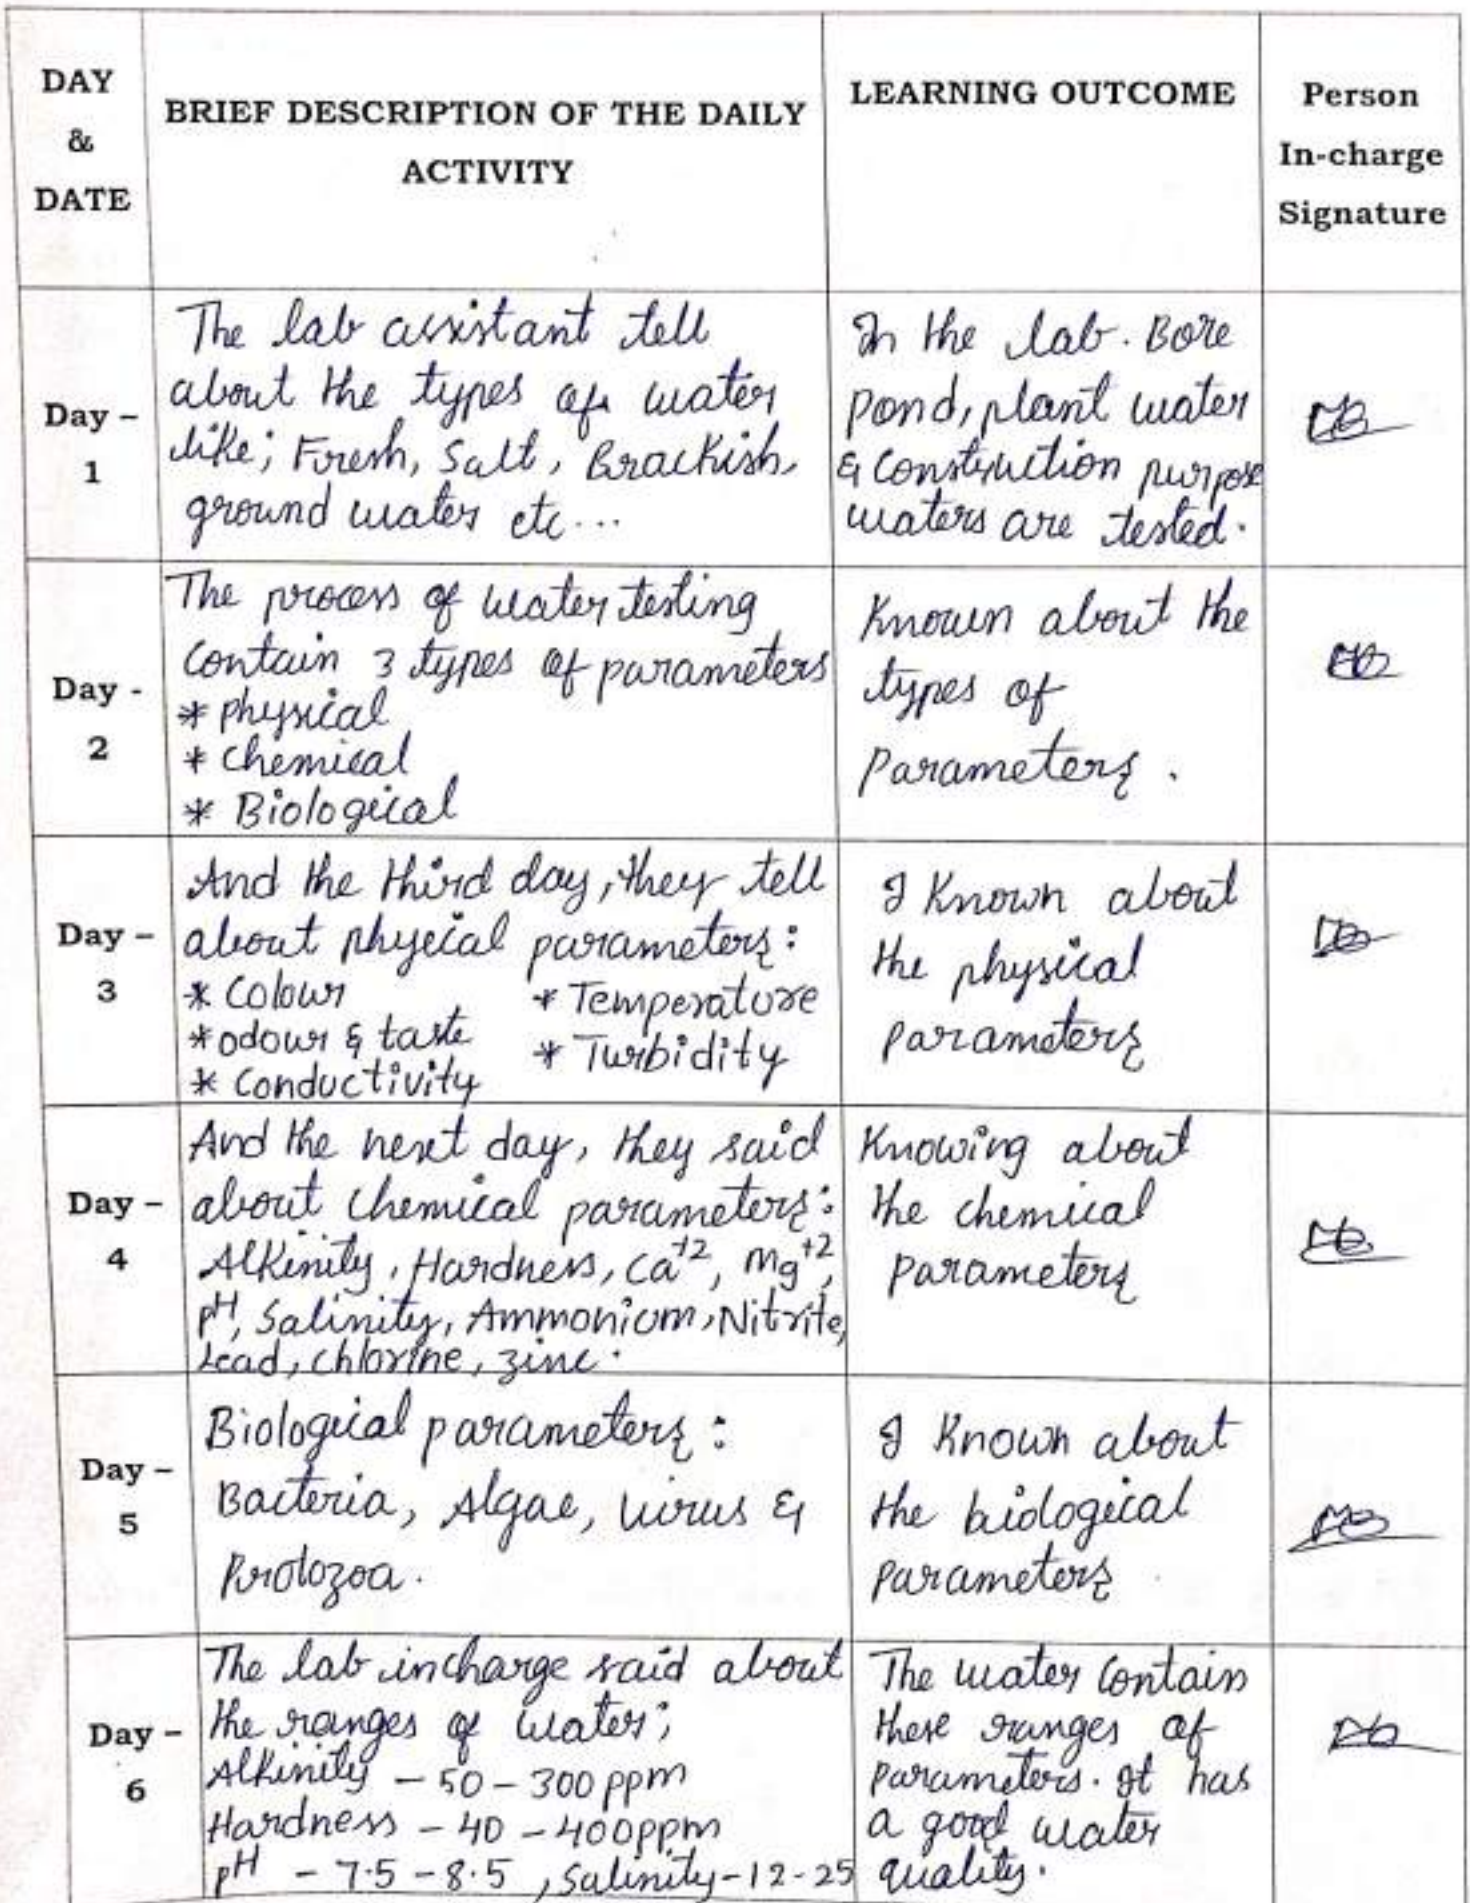 DAY
&
DATE
BRIEF DESCRIPTION OF THE DAILY
ACTIVITY
LEARNING OUTCOME
Person
In-charge
Signature
Day –
1
The lab assistant tell
about the types of water
like; Fresh, Salt, Brackish,
ground water etc...
In the lab. Bore
pond, plant water
& Construction purpose
waters are tested.
Day -
2
The process of water testing
contain 3 types of parameters
* physical
* chemical
* Biological
Known about the
types of
parameters.
Day –
3
And the third day, they tell
about phyical parameters:
* Colour * Temperature
* odour & taste * Turbidity
* Conductivity
I Known about
the physical
parameters
Day –
4
And the next day, they said
about chemical parameters:
Alkinity, Hardness, Ca+2, Mg+2,
pH, Salinity, Ammonium, Nitrite,
Lead, chlorine, zinc.
Knowing about
the chemical
parameters
Day –
5
Biological parameters:
Bacteria, Algae, virus &
Protozoa.
I Known about
the biological
parameters
Day –
6
The lab incharge said about
the ranges of water;
Alkinity – 50 – 300 ppm
Hardness – 40 – 400ppm
pH – 7.5 – 8.5, Salinity – 12-25
The water contain
these ranges of
parameters. It has
a good water
quality.